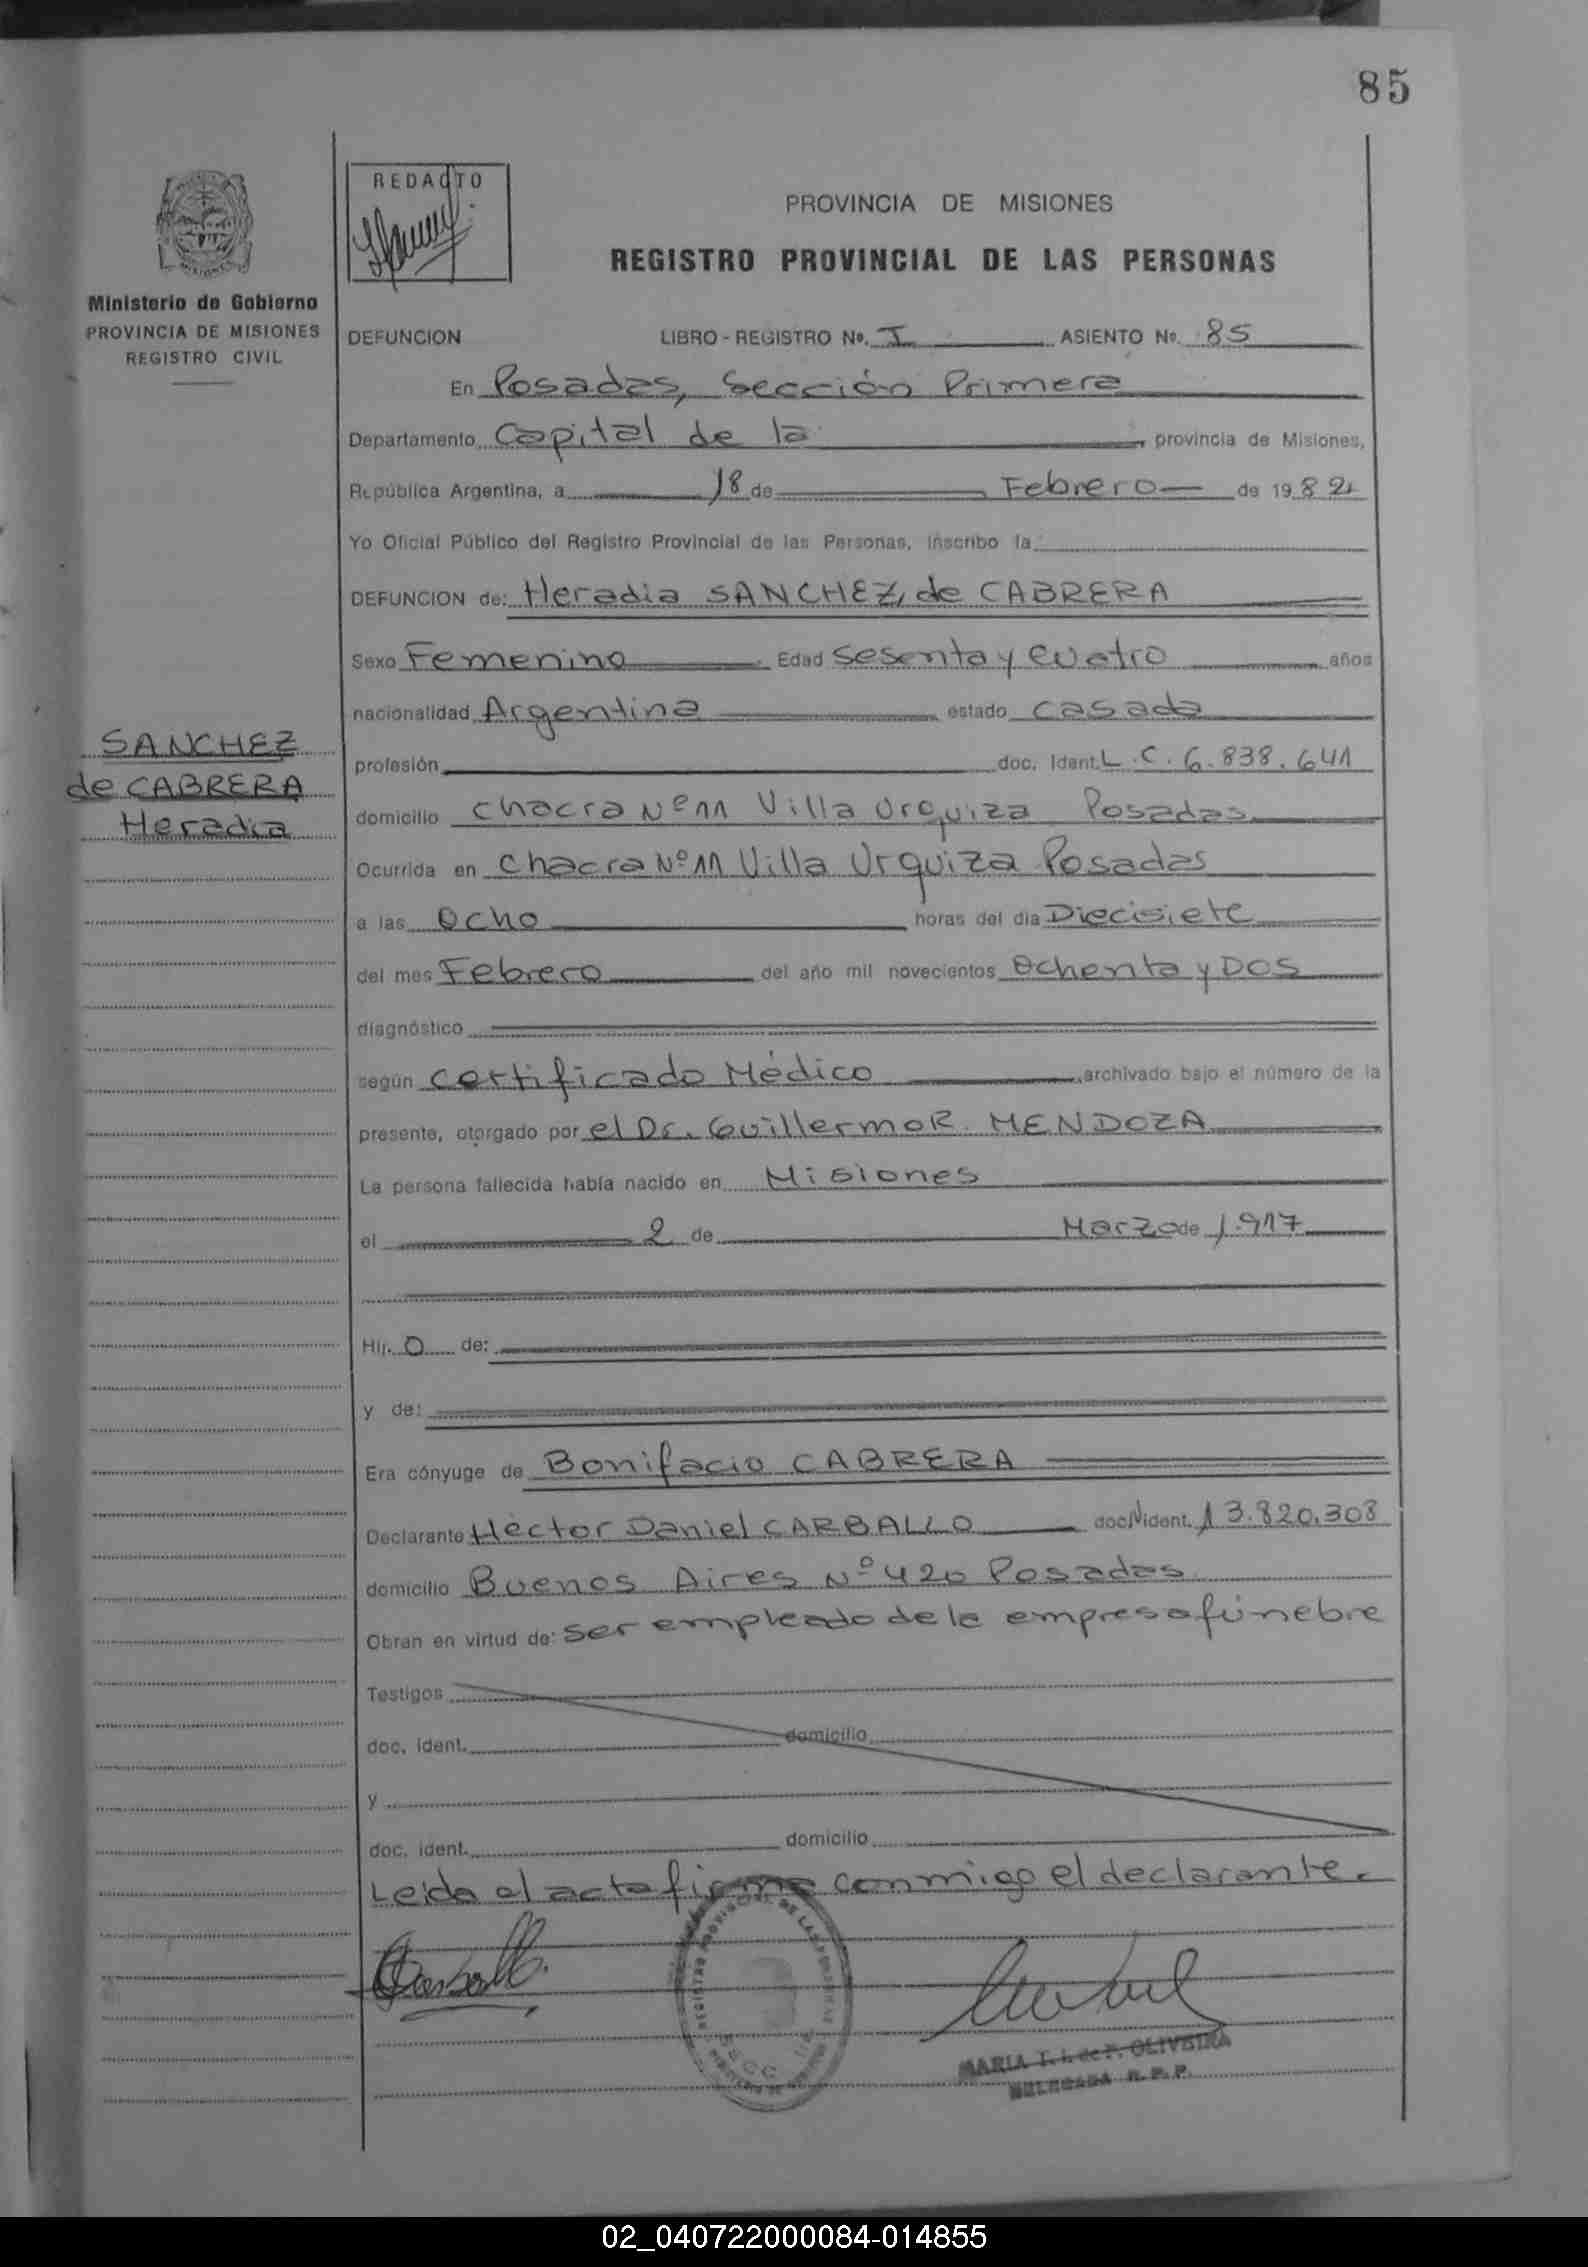 85
REDACTO
PROVINCIA DE MISIONES
REGISTRO PROVINCIAL DE LAS PERSONAS
MISIONES
Ministerio de Gobierno
PROVINCIA DE MISIONES
REGISTRO CIVIL
DEFUNCION LIBRO - REGISTRO No. I ASIENTO No. 85
En Posadas, Sección Primera
Departamento Capital de la provincia de Misiones,
República Argentina, a 18 de Febrero de 1982
Yo Oficial Público del Registro Provincial de las Personas, inscribo la
DEFUNCION de: Heradia SANCHEZ de CABRERA
Sexo Femenino Edad Sesenta y cuatro años
nacionalidad Argentina estado casada
SANCHEZ
de CABRERA
Heradia
profesión doc. Ident. L.C. 6.838.641
domicilio Chacra Nº 11 Villa Urquiza Posadas
Ocurrida en Chacra Nº 11 Villa Urquiza Posadas
a las Ocho horas del día Diecisiete
del mes Febrero del año mil novecientos Ochenta y DOS
diagnóstico
según certificado Médico archivado bajo el número de la
presente, otorgado por el Dr. Guillermo R. MENDOZA
La persona fallecida había nacido en Misiones
el 2 de Marzo de 1.917
Hij. O de:
y de:
Era cónyuge de Bonifacio CABRERA
Declarante Héctor Daniel CARBALLO doc. ident. 13.820.308
domicilio Buenos Aires Nº 420 Posadas
Obran en virtud de: ser empleado de la empresa fúnebre
Testigos
doc. ident. domicilio
y
doc. ident. domicilio
Leída el acta firma conmigo el declarante.
REGISTRO PROVINCIAL DE LAS PERSONAS
MARIA T. I. de P. OLIVEIRA
DELEGADA R. P. P.
02_040722000084-014855